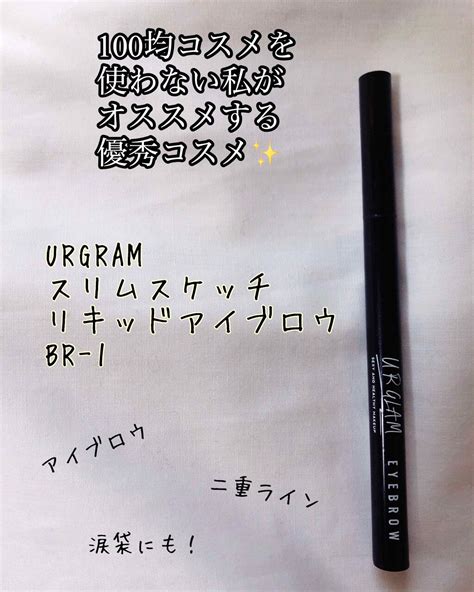 100均コスメを
使わない私が
オススメする
優秀コスメ✨
URGRAM
スリムスケッチ
リキッドアイブロウ
BR-1
アイブロウ
二重ライン
涙袋にも!
URGLAM EYEBROW
SEXY AND HEALTHY MAKEUP